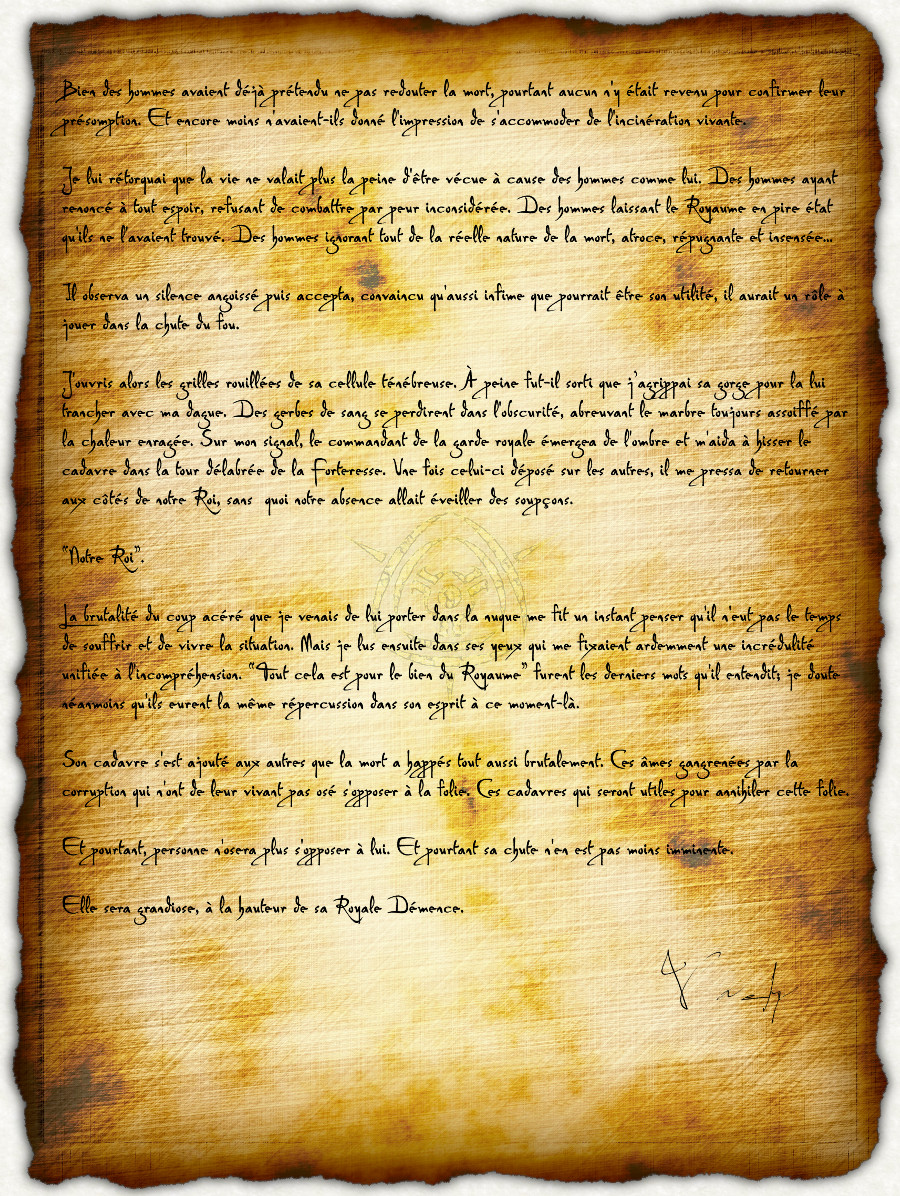 Bien des hommes avaient déjà prétendu ne pas redouter la mort, pourtant aucun n'y était revenu pour confirmer leur
présomption. Et encore moins n'avaient-ils donné l'impression de s'accommoder de l'incinération vivante.
Je lui rétorquai que la vie ne valait plus la peine d'être vécue à cause des hommes comme lui. Des hommes ayant
renoncé à tout espoir, refusant de combattre par peur inconsidérée. Des hommes laissant le Royaume en pire état
qu'ils ne l'avaient trouvé. Des hommes ignorant tout de la réelle nature de la mort, atroce, répugnante et insensée...
Il observa un silence angoissé puis accepta, convaincu qu'aussi infime que pourrait être son utilité, il aurait un rôle à
jouer dans la chute du fou.
J'ouvris alors les grilles rouillées de sa cellule ténébreuse. À peine fut-il sorti que j'agrippai sa gorge pour la lui
trancher avec ma dague. Des gerbes de sang se perdirent dans l'obscurité, abreuvant le marbre toujours assoiffé par
la chaleur enragée. Sur mon signal, le commandant de la garde royale émergea de l'ombre et m'aida à hisser le
cadavre dans la tour délabrée de la Forteresse. Une fois celui-ci déposé sur les autres, il me pressa de retourner
aux côtés de notre Roi, sans quoi notre absence allait éveiller des soupçons.
"Notre Roi".
La brutalité du coup acéré que je venais de lui porter dans la nuque me fit un instant penser qu'il n'eut pas le temps
de souffrir et de vivre la situation. Mais je lus ensuite dans ses yeux qui me fixaient ardemment une incrédulité
unifiée à l'incompréhension. "Tout cela est pour le bien du Royaume" furent les derniers mots qu'il entendit; je doute
néanmoins qu'ils eurent la même répercussion dans son esprit à ce moment-là.
Son cadavre s'est ajouté aux autres que la mort a happés tout aussi brutalement. Ces âmes gangrenées par la
corruption qui n'ont de leur vivant pas osé s'opposer à la folie. Ces cadavres qui seront utiles pour annihiler cette folie.
Et pourtant, personne n'osera plus s'opposer à lui. Et pourtant sa chute n'en est pas moins imminente.
Elle sera grandiose, à la hauteur de sa Royale Démence.